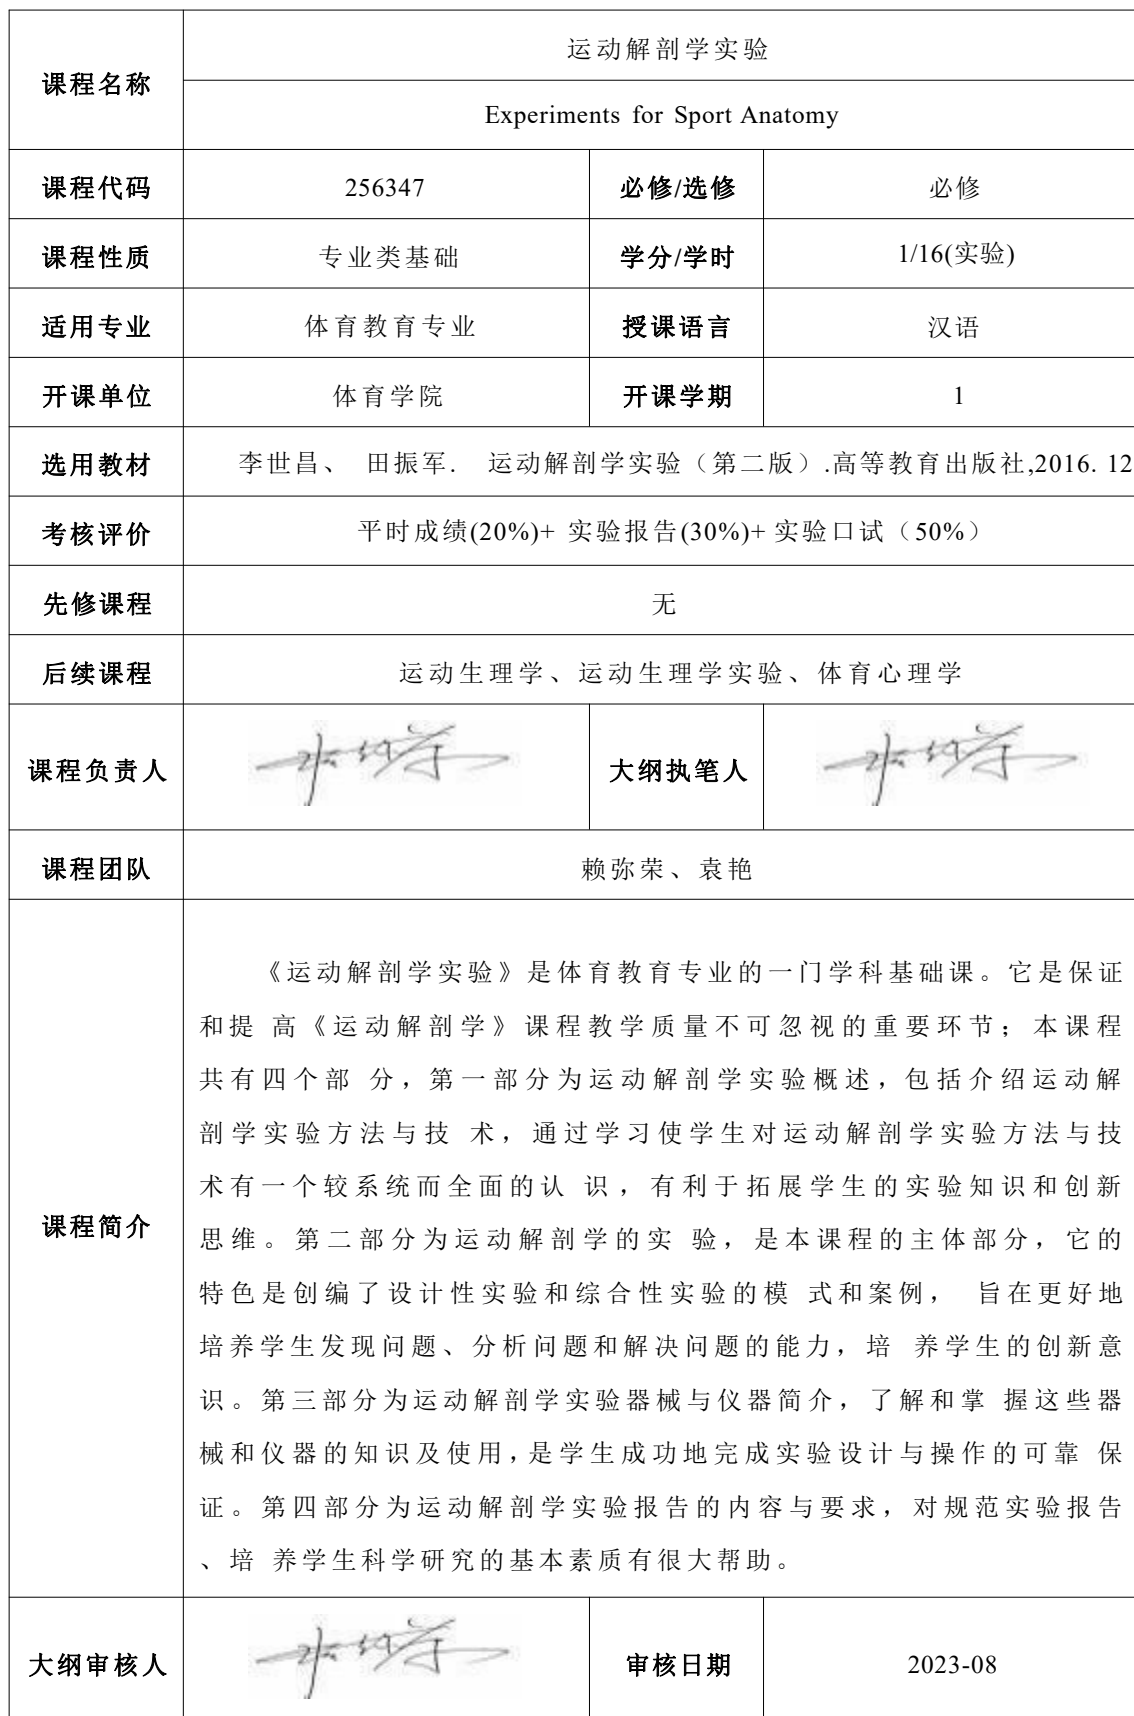 课程名称
运动解剖学实验
Experiments for Sport Anatomy
课程代码 256347 必修/选修 必修
课程性质 专业类基础 学分/学时 1/16(实验)
适用专业 体育教育专业 授课语言 汉语
开课单位 体育学院 开课学期 1
选用教材 李世昌、 田振军. 运动解剖学实验（第二版）.高等教育出版社,2016. 12
考核评价 平时成绩(20%)+ 实验报告(30%)+ 实验口试（50%）
先修课程 无
后续课程 运动生理学、运动生理学实验、体育心理学
课程负责人 大纲执笔人
课程团队 赖弥荣、袁艳
课程简介
《运动解剖学实验》是体育教育专业的一门学科基础课。它是保证
和提 高《运动解剖学》课程教学质量不可忽视的重要环节；本课程
共有四个部 分，第一部分为运动解剖学实验概述，包括介绍运动解
剖学实验方法与技 术，通过学习使学生对运动解剖学实验方法与技
术有一个较系统而全面的认 识，有利于拓展学生的实验知识和创新
思维。第二部分为运动解剖学的实 验，是本课程的主体部分，它的
特色是创编了设计性实验和综合性实验的模 式和案例， 旨在更好地
培养学生发现问题、分析问题和解决问题的能力，培 养学生的创新意
识。第三部分为运动解剖学实验器械与仪器简介，了解和掌 握这些器
械和仪器的知识及使用，是学生成功地完成实验设计与操作的可靠 保
证。第四部分为运动解剖学实验报告的内容与要求，对规范实验报告
、培 养学生科学研究的基本素质有很大帮助。
大纲审核人 审核日期 2023-08